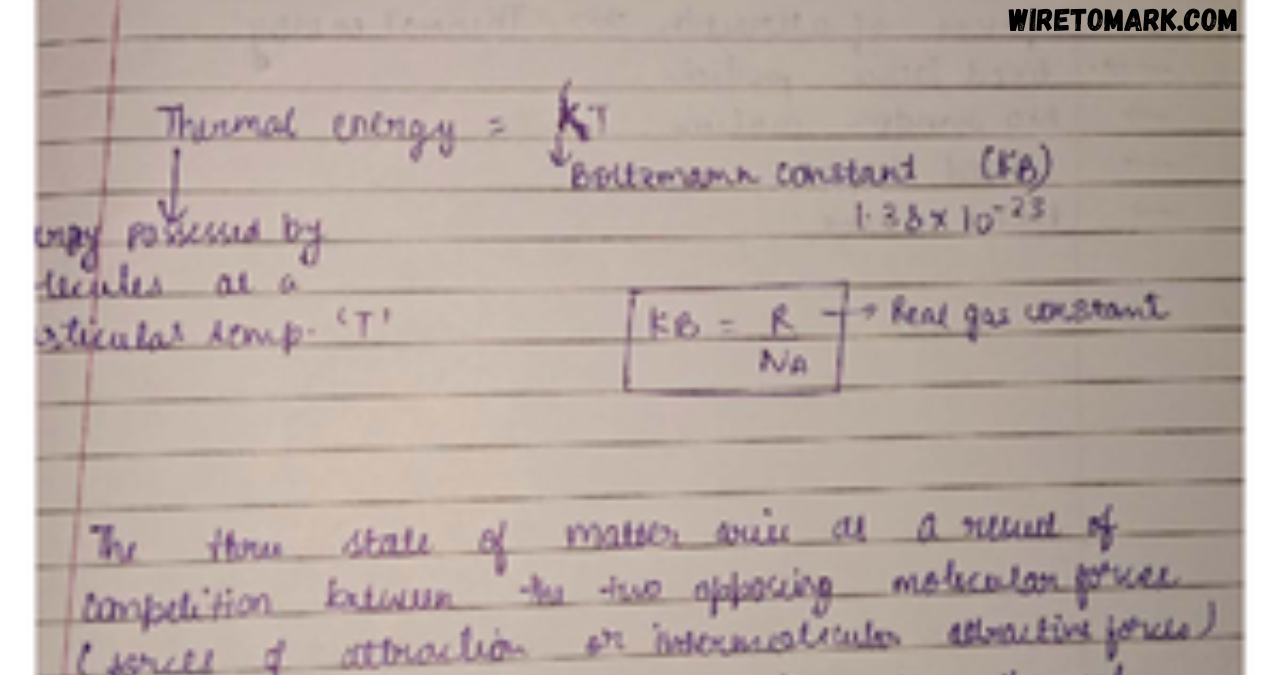 WIRETOMARK.COM
Thermal energy = KT
Boltzmann constant (KB)
1.38 x 10-23
possessed by
at a
temp. 'T'
KB = R → Real gas constant
NA
The three state of matter arise as a result of
competition between the two opposing molecular forces
(forces of attraction or intermolecular attractive forces)